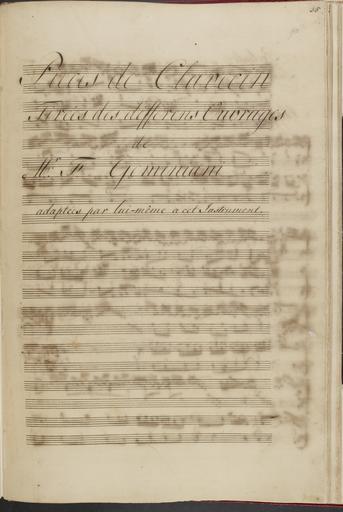 55
Pieces de Clavecin
Tirées des differens Ouvrages
de
Mr. F. Geminiani
adaptées par lui-même a cet Instrument.